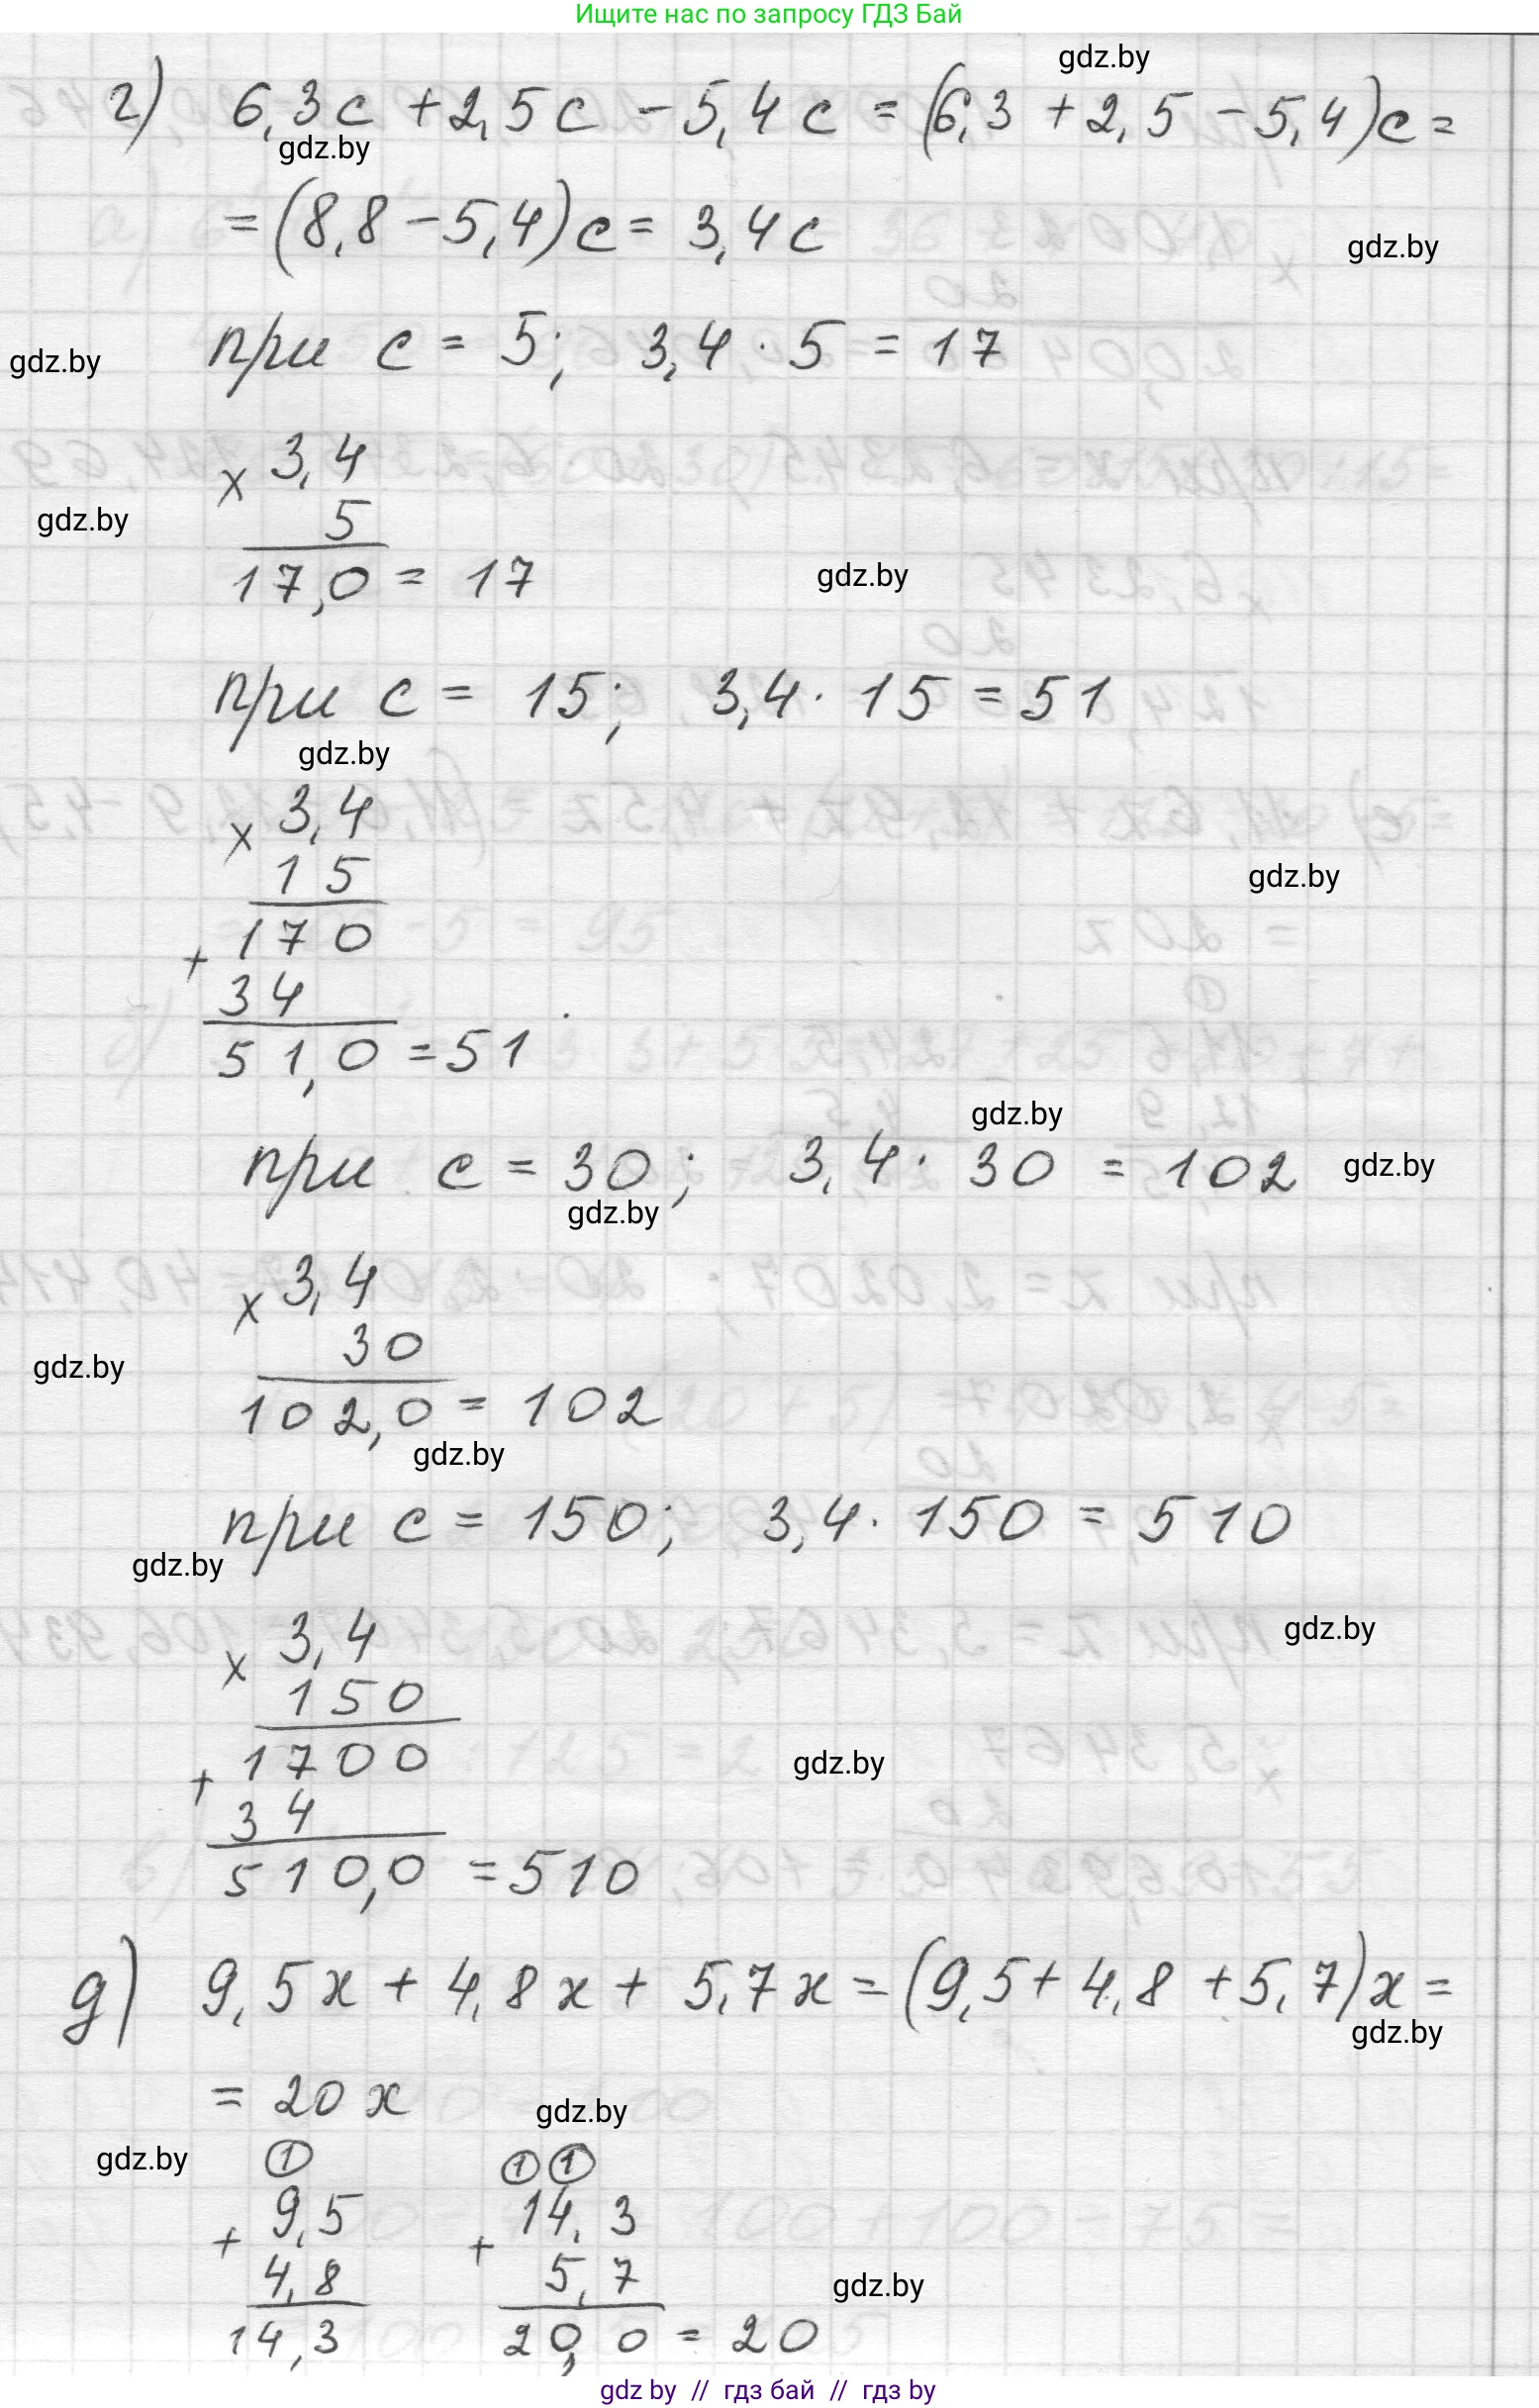 Ищите нас по запросу ГДЗ Бай
gdz.by
г) 6,3c + 2,5c - 5,4c = (6,3 + 2,5 - 5,4)c =
gdz.by
= (8,8 - 5,4)c = 3,4c
gdz.by
при c = 5; 3,4 · 5 = 17
gdz.by
× 3,4
5
gdz.by
17,0 = 17
gdz.by
при c = 15; 3,4 · 15 = 51
gdz.by
× 3,4
15
gdz.by
170
+
34
51,0 = 51
gdz.by
при c = 30; 3,4 · 30 = 102
gdz.by
gdz.by
× 3,4
30
gdz.by
102,0 = 102
gdz.by
при c = 150; 3,4 · 150 = 510
gdz.by
× 3,4
gdz.by
150
1700
gdz.by
+
34
510,0 = 510
д) 9,5x + 4,8x + 5,7x = (9,5 + 4,8 + 5,7)x =
gdz.by
= 20x
gdz.by
gdz.by
1 1 1
9,5 14,3
+ +
4,8 5,7
gdz.by
14,3 20,0 = 20
gdz by // гдз бай // гдз by